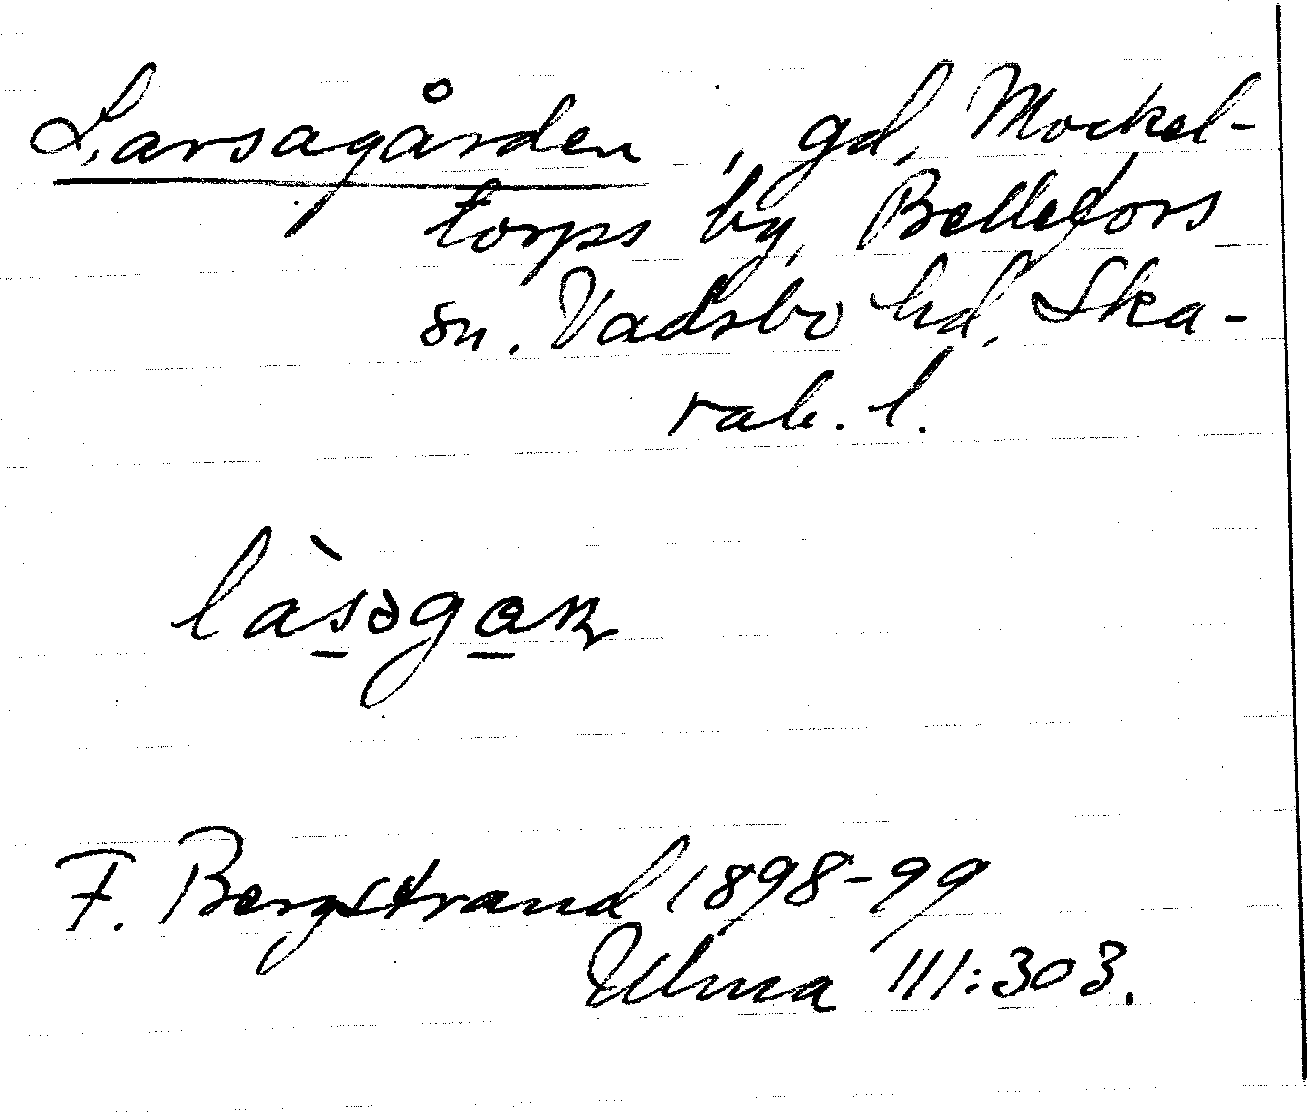 Larsagården, gd, Mockel-
torps by, Bellefors
sn. Vadsbo hd, Ska-
rab. l.
F. Bergstrand 1898-99
Ulma 111:303.